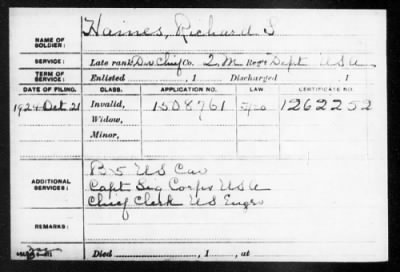 NAME OF SOLDIER: Haines, Richard S
SERVICE: Late rank Div Chief Co. Q. M Reg't Dept USA
TERM OF SERVICE: Enlisted , 1 Discharged , 1
DATE OF FILING. CLASS. APPLICATION NO. LAW CERTIFICATE NO.
1924 Oct. 21 Invalid, 1508761 1262252
Widow,
Minor,
ADDITIONAL SERVICES: B-5 US Cav
Capt Sig Corps USA
Chief Clerk US Engrs
REMARKS:
Died , 1 , at